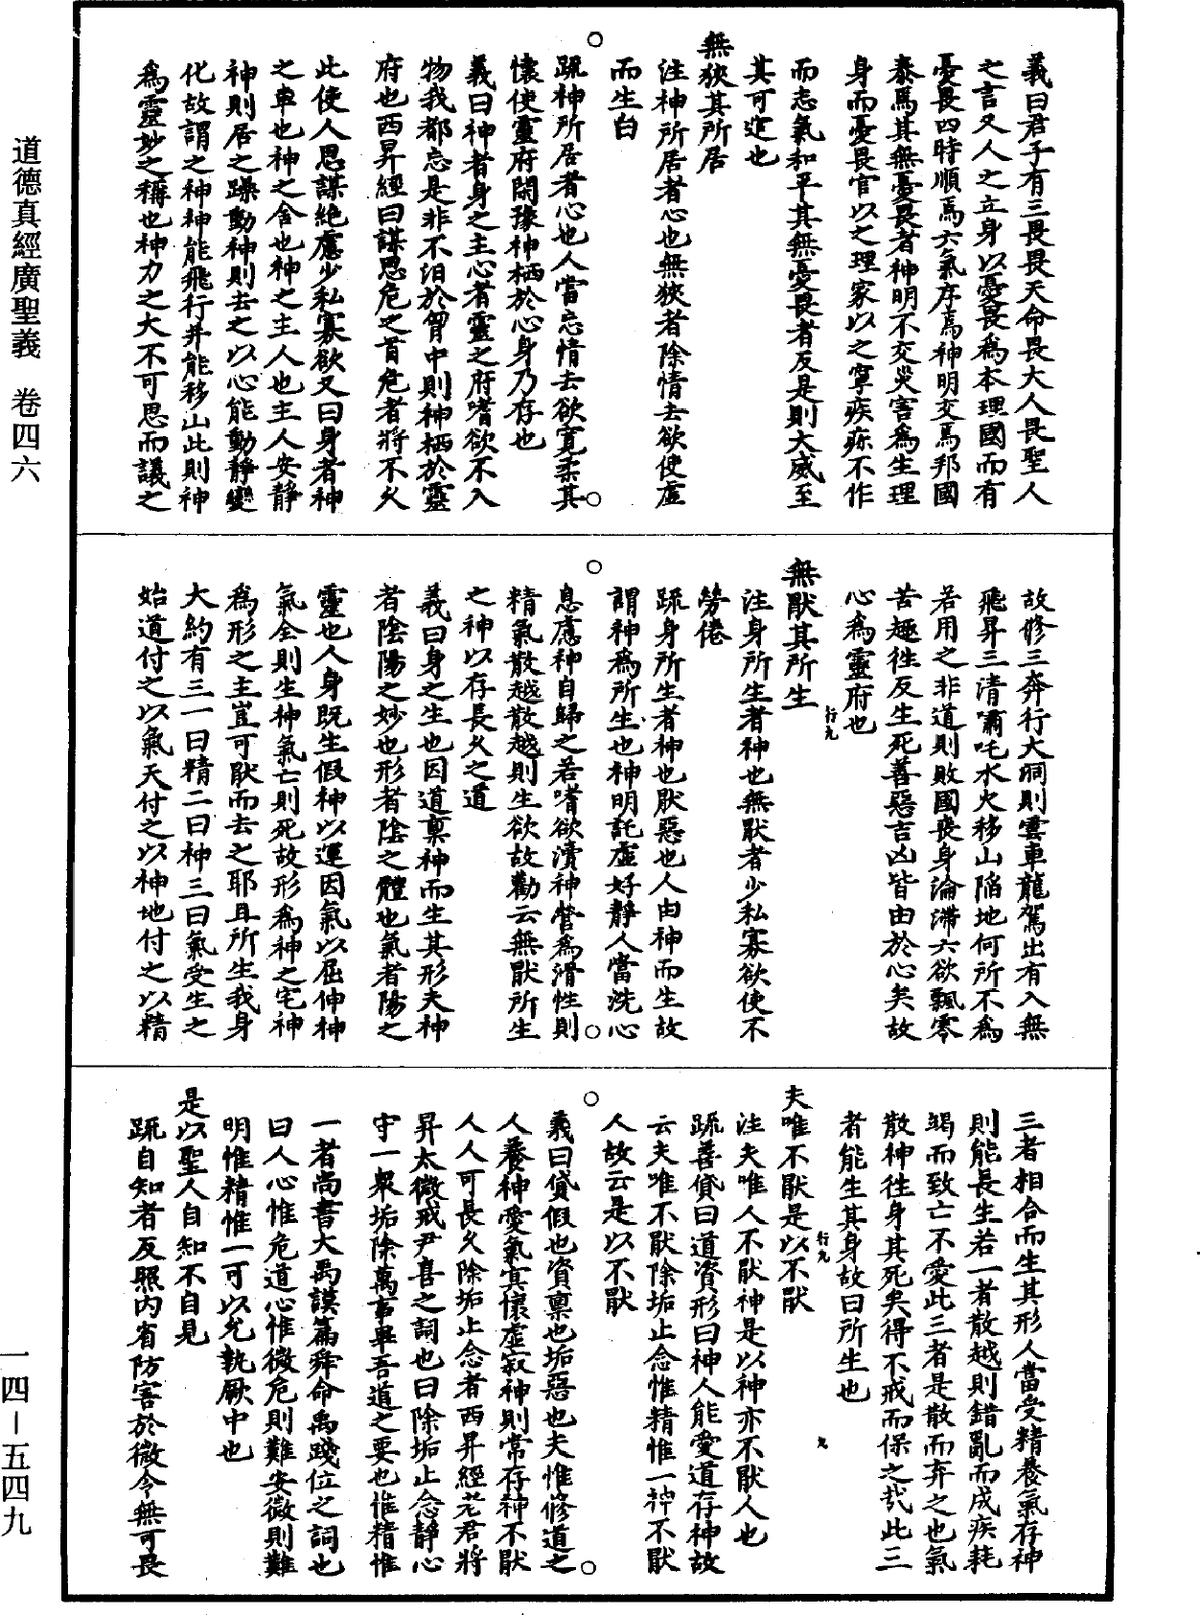 道德真經廣聖義　卷四六
義曰君子有三畏畏天命畏大人畏聖人
之言又人之立身以憂畏爲本理國而有
憂畏四時順焉六氣序焉神明交焉邦國
泰焉其無憂畏者神明不交災害爲生理
身而憂畏官以之理家以之寧疾疹不作
而志氣和平其無憂畏者反是則大威至
其可逭也
無狹其所居
注神所居者心也無狹者除情去欲使虛
而生白
疏神所居者心也人當忘情去欲寬柔其
懷使靈府閑豫神栖於心身乃存也
義曰神者身之主心者靈之府嗜欲不入
物我都忘是非不汨於胷中則神栖於靈
府也西昇經曰謀思危之首危者將不久
此使人思謀絶慮少私寡欲又曰身者神
之車也神之舍也神之主人也主人安靜
神則居之躁動神則去之以心能動靜變
化故謂之神神能飛行并能移山此則神
爲靈妙之稱也神力之大不可思而議之
故修三奔行大洞則雲車龍駕出有入無
飛昇三清嘯吒水火移山陷地何所不爲
若用之非道則敗國喪身淪滯六欲飄零
苦趣徃反生死善惡吉凶皆由於心矣故
心爲靈府也
行九
無猒其所生
注身所生者神也無猒者少私寡欲使不
勞倦
疏身所生者神也猒惡也人由神而生故
謂神爲所生也神明託虛好靜人當洗心
息慮神自歸之若嗜欲瀆神營爲滑性則
精氣散越散越則生欲故勸云無猒所生
之神以存長久之道
義曰身之生也因道禀神而生其形夫神
者陰陽之妙也形者陰之體也氣者陽之
靈也人身既生假神以運因氣以屈伸神
氣全則生神氣亡則死故形爲神之宅神
爲形之主豈可猒而去之耶且所生我身
大約有三一曰精二曰神三曰氣受生之
始道付之以氣天付之以神地付之以精
三者相合而生其形人當受精養氣存神
則能長生若一者散越則錯亂而成疾耗
竭而致亡不愛此三者是散而弃之也氣
散神徃身其死矣得不戒而保之哉此三
者能生其身故曰所生也
行九
九
夫唯不猒是以不猒
注夫唯人不猒神是以神亦不猒人也
疏善貸曰道資形曰神人能愛道存神故
云夫唯不猒除垢止念惟精惟一神不猒
人故云是以不猒
義曰貸假也資禀也垢惡也夫惟修道之
人養神愛氣冥懷虛寂神則常存神不猒
人人可長久除垢止念者西昇經老君將
昇太微戒尹喜之詞也曰除垢止念靜心
守一衆垢除萬事畢吾道之要也惟精惟
一者尚書大禹謨篇舜命禹踐位之詞也
曰人心惟危道心惟微危則難安微則難
明惟精惟一可以允執厥中也
是以聖人自知不自見
疏自知者反照内省防害於微令無可畏
一四－五四九